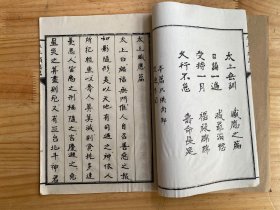 太上垂訓 感應之篇
日誦一遍 滅罪消愆
受持一月 福祿彌堅
久行不怠 壽命延
太上感應篇
太上曰禍福無門惟人自召善惡之報
如影隨形是以天地有司過之神依人
所犯輕重以奪人算算減則貧耗多逢
憂患人皆惡之刑禍隨之吉慶避之惡
星災之算盡則死又有三台北斗神